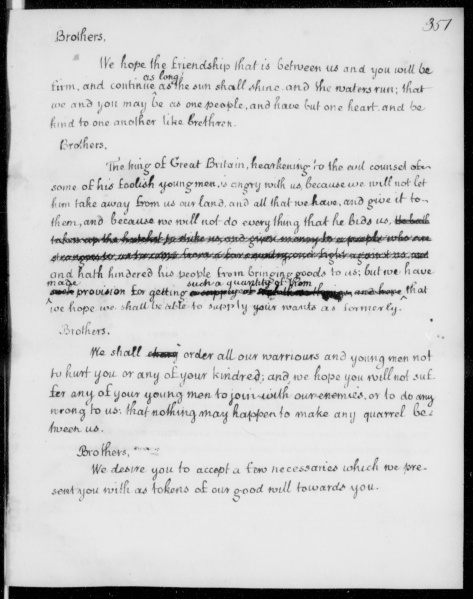 351
Brothers,
We hope the friendship that is between us and you will be
firm, and continue as long as the sun shall shine and the waters run; that
we and you may be as one people, and have but one heart, and be
kind to one another like brethren.
Brothers,
The king of Great Britain, hearkening to the evil counsel of
some of his foolish young men, is angry with us, because we will not let
him take away from us our land, and all that we have, and give it to
them, and because we will not do every thing that he bids us, he hath
taken up the hatchet to strike us, and given money to a people who are
strangers to us to come from a far country, and fight against us, and
and hath hindered his people from bringing goods to us; but we have
made provision for getting such a quantity of them that
we hope we shall be able to supply your wants as formerly.
Brothers.
We shall order all our warriours and young men not
to hurt you or any of your kindred; and we hope you will not suf
fer any of your young men to join with our enemies, or to do any
wrong to us: that nothing may happen to make any quarrel be-
tween us.
Brothers,
We desire you to accept a few necessaries which we pre-
sent you with as tokens of our good will towards you.